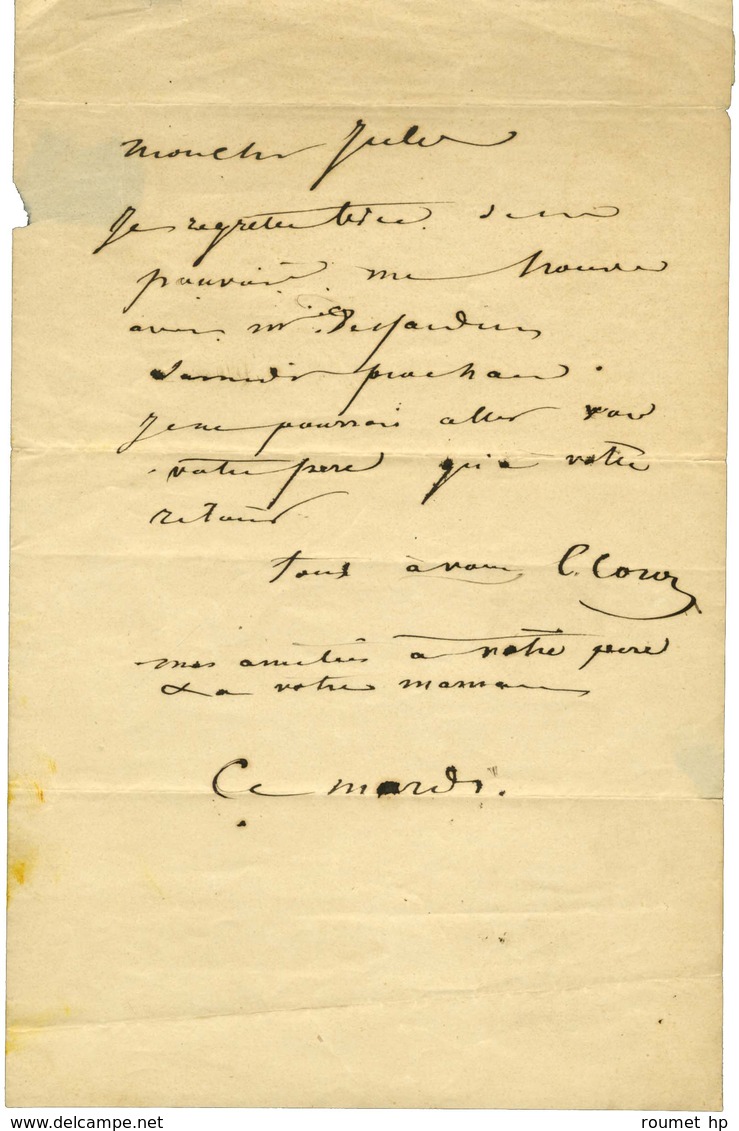 Mon cher Jules
Je regrette bien de ne
pouvoir me trouver
avec Mr Desjardins
Samedi prochain.
Je ne pourrai aller voir
votre père qu'à votre
retour
tout à vous C. Corot
mes amitiés à votre père
& a votre maman
Ce mardi.
www.delcampe.net
roumet hp